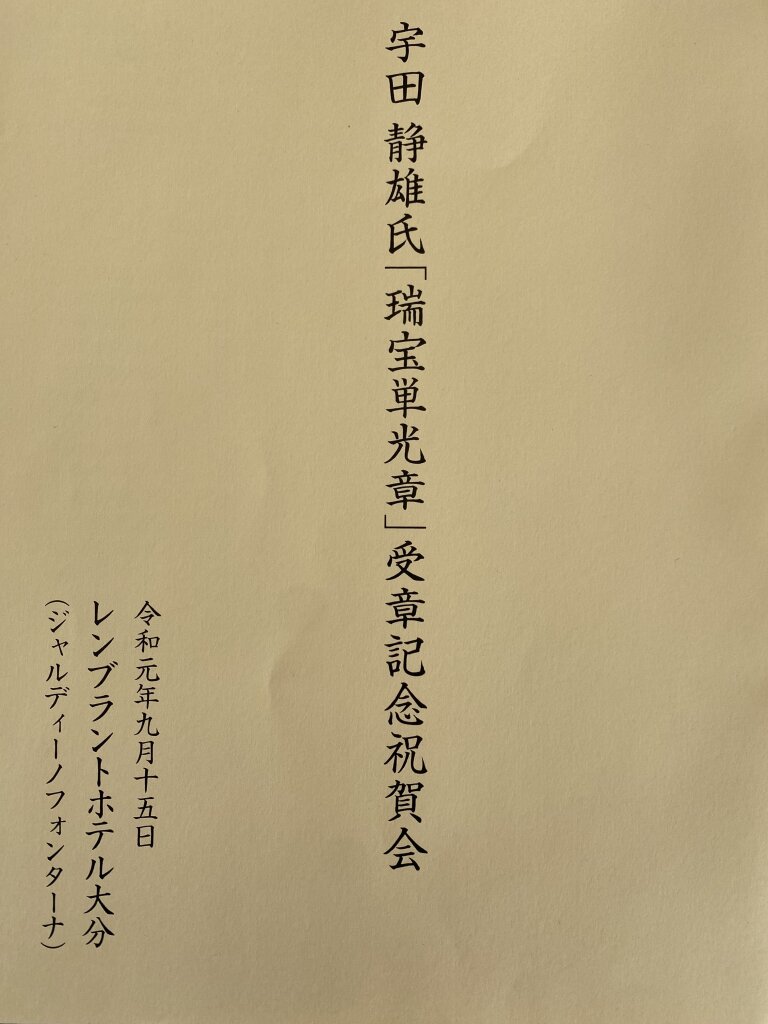 宇田 静雄氏「瑞宝単光章」受章記念祝賀会
令和元年九月十五日
レンブラントホテル大分
（ジャルディーノフォンターナ）